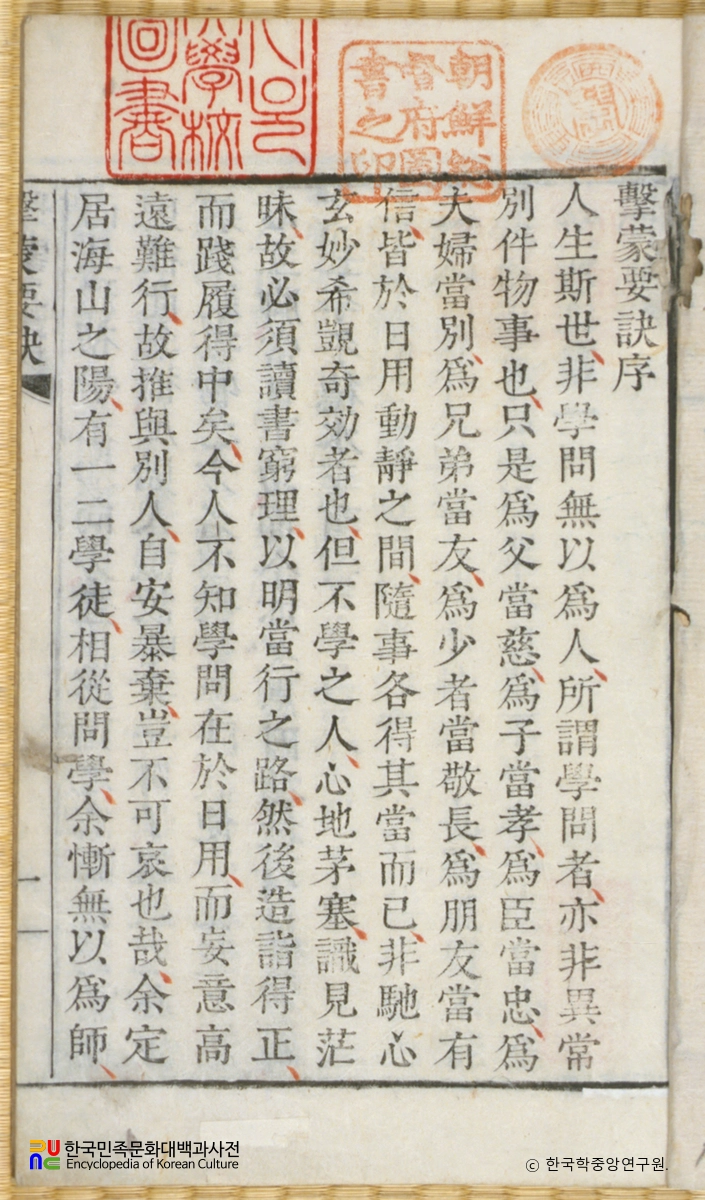 擊蒙要訣序
人生斯世、非學問無以爲人、所謂學問者、亦非異常
別件物事也、只是爲父當慈、爲子當孝、爲臣當忠、爲
夫婦當別、爲兄弟當友、爲少者當敬長、爲朋友當有
信、皆於日用動靜之間、隨事各得其當而已、非馳心
玄妙希覬奇効者也、但不學之人、心地茅塞、識見茫
昧、故必須讀書窮理、以明當行之路、然後造詣得正、
而踐履得中矣、今人不知學問在於日用、而妄意高
遠難行、故推與別人、自安暴棄、豈不可哀也哉、余定
居海山之陽、有一二學徒、相從問學、余慚無以爲師、
擊蒙要訣
一
朝鮮總
督府圖
書之印
學校
圖書
한국민족문화대백과사전
Encyclopedia of Korean Culture
ⓒ 한국학중앙연구원.